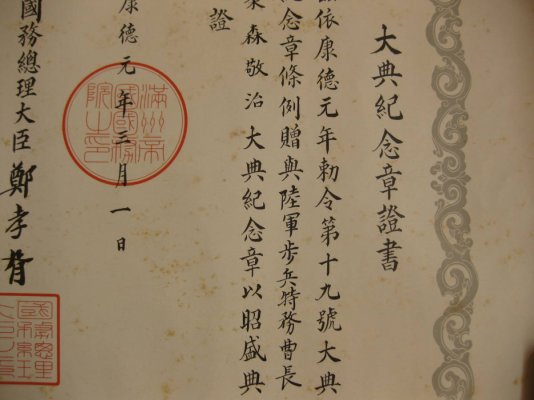 大典紀念章證書
依康德元年勅令第十九號大典
紀念章條例贈與陸軍步兵特務曹長
森敬治大典紀念章以昭盛典
證
康德元年三月一日
滿州帝
國國務
院之印
國務總理大臣鄭孝胥